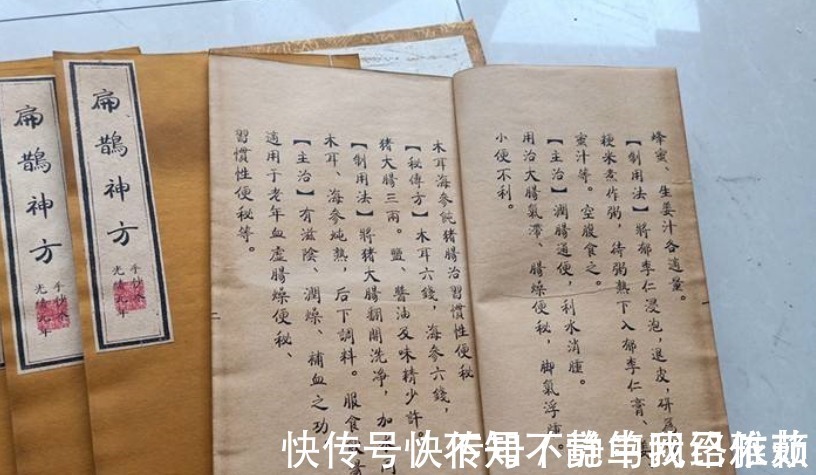 扁鵲神方
手抄本
光緒元年
扁鵲神方
手抄本
光緒元年
蜂蜜、生姜汁各適量。
【制用法】將郁李仁浸泡，退皮，研爲
粳米煮作粥，待粥熟下入郁李仁膏、
蜜汁等。空腹食之。
【主治】潤腸通便，利水消腫。
用治大腸氣滯、腸燥便秘，脚氣浮腫
小便不利。
木耳海參炖猪腸治習慣性便秘
【秘傳方】木耳六錢，海參六錢，
猪大腸三兩。鹽、醬油及味精少許。
【制用法】將猪大腸翻開洗净，加
木耳、海參炖熟，后下調料。服食
【主治】有滋陰、潤燥、補血之功
適用于老年血虚腸燥便秘、
習慣性便秘等。
二
快传号